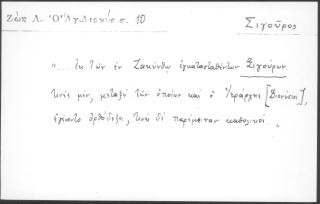 Ζώη Λ. Ὁ Ἅγ. Διονύσιος σ. 10
Σιγοῦρος
"... Ἐκ τῶν ἐν Ζακύνθῳ ἐγκατασταθέντων Σιγούρων
τινὲς μὲν, μεταξὺ τῶν ὁποίων καὶ ὁ Ἱεράρχης [Διονύσιος],
ἐγένοντο ὀρθόδοξοι, τινὲς δὲ παρέμειναν καθολικοί. "